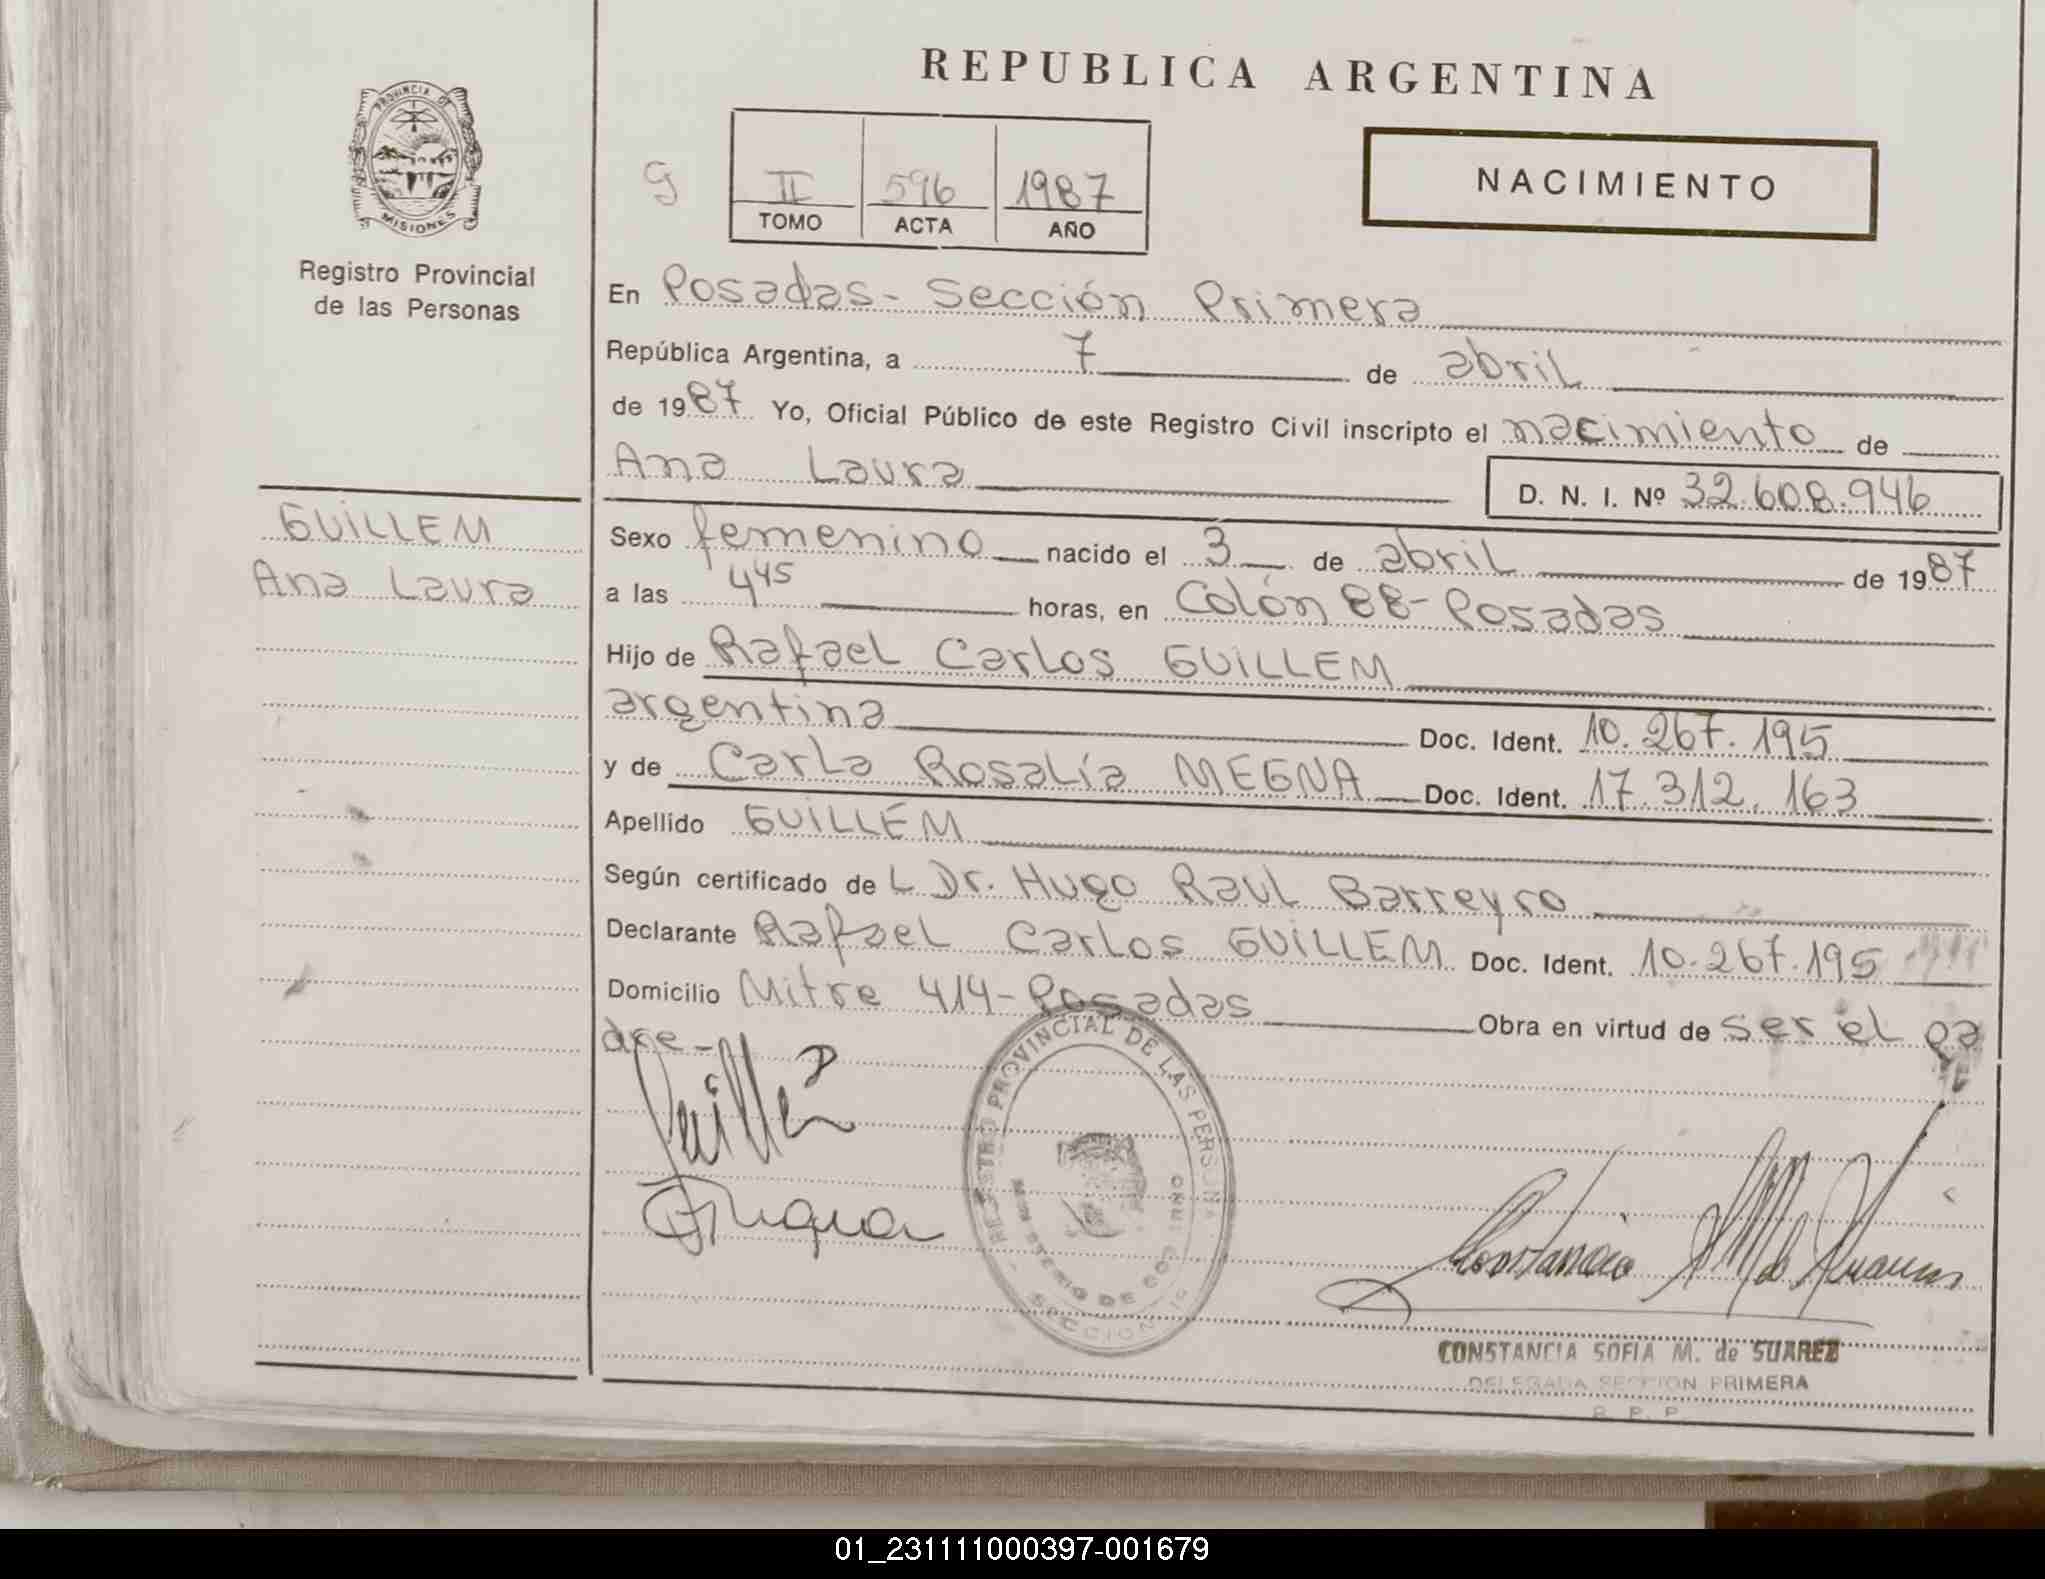 REPUBLICA ARGENTINA
PROVINCIA DE
MISIONES
Registro Provincial
de las Personas
G
II 596 1987
TOMO ACTA AÑO
NACIMIENTO
En Posadas- Sección Primera
República Argentina, a 7 de abril
de 1987 Yo, Oficial Público de este Registro Civil inscripto el nacimiento de
Ana Laura
D. N. I. Nº 32.608.946
GUILLEM
Ana Laura
Sexo femenino nacido el 3 de abril de 1987
a las 4 45 horas, en Colón 88- Posadas
Hijo de Rafael Carlos GUILLEM
argentina Doc. Ident. 10.267.195
y de Carla Rosalía MEGNA Doc. Ident. 17.312.163
Apellido GUILLEM
Según certificado de L Dr. Hugo Raul Barreyro
Declarante Rafael Carlos GUILLEM Doc. Ident. 10.267.195
Domicilio Mitre 414- Posadas Obra en virtud de ser el pa
dre-
REGISTRO PROVINCIAL DE LAS PERSONAS
MINISTERIO DE GOBIERNO
SECCION 1ª
CONSTANCIA SOFIA M. de SUAREZ
DELEGADA SECCION PRIMERA
R. P. P.
01_231111000397-001679